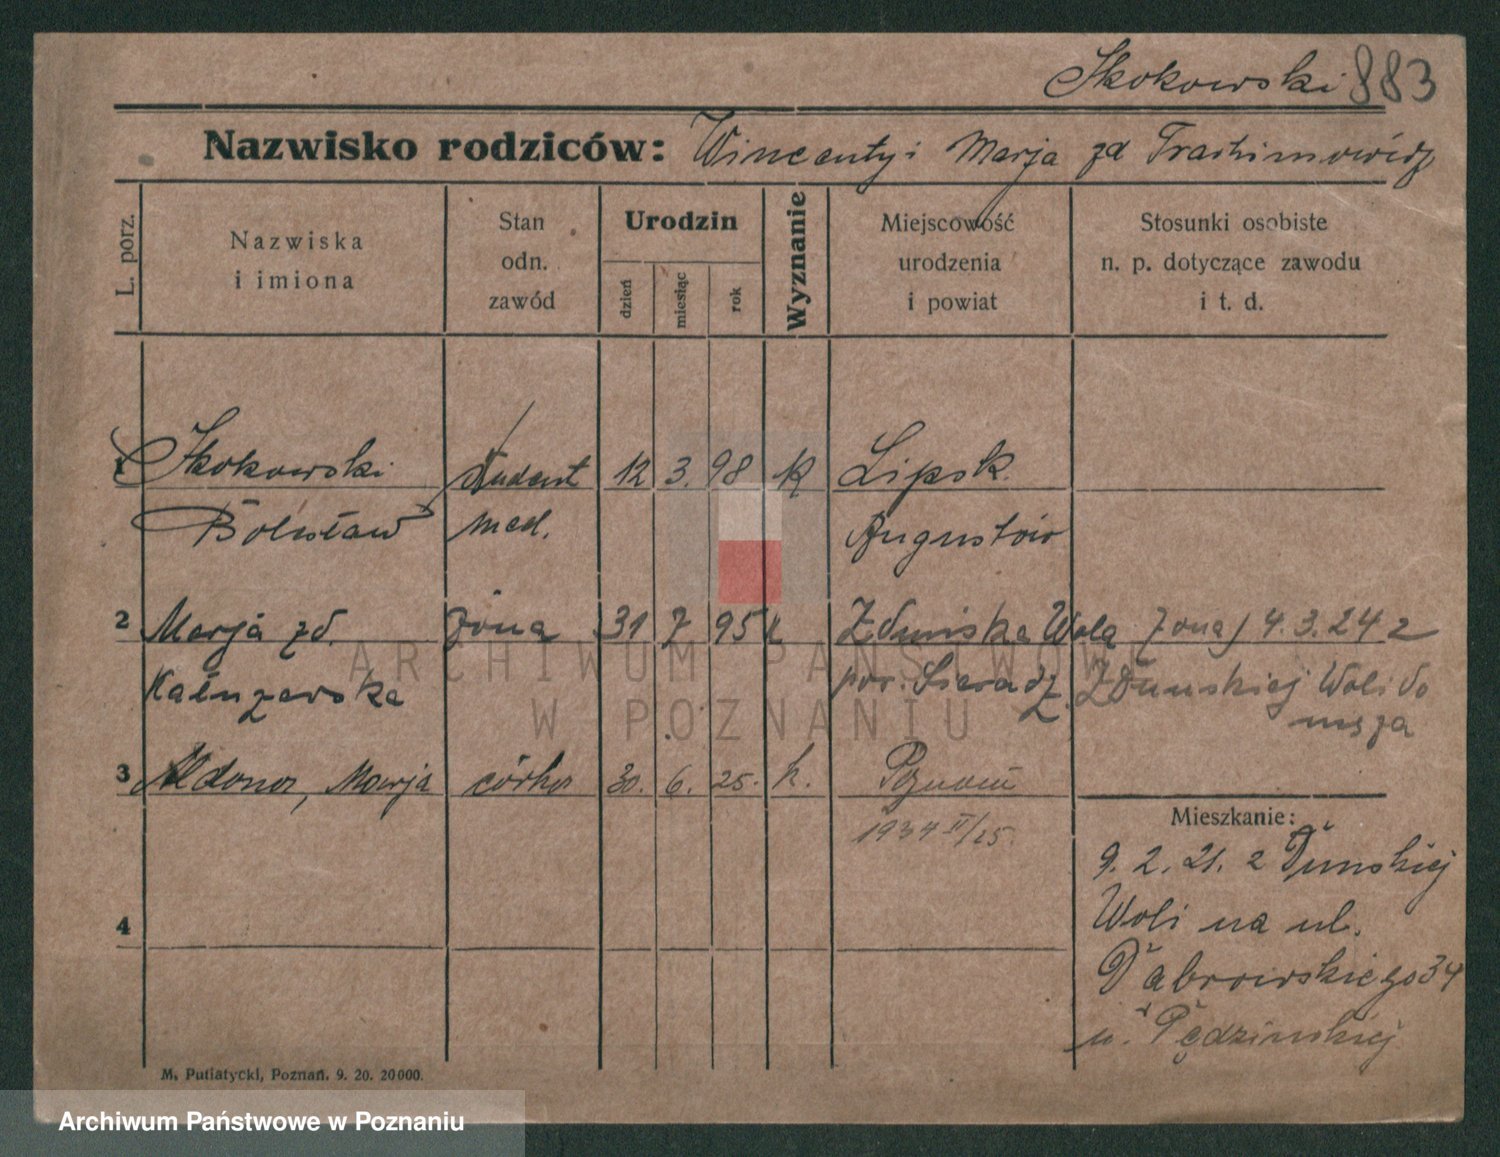 Skokowski 883
Nazwisko rodziców: Wincenty i Marja zd
L. porz.
Nazwiska
i imiona
Stan
odn.
zawód
Urodzin
dzień
miesiąc
rok
Wyznanie
Miejscowość
urodzenia
i powiat
Stosunki osobiste
n. p. dotyczące zawodu
i t. d.
1 Skokowski student 12 3. 98 k Lipsk
Bolesław med. Augustów
2 Marja zd. żona 31 7 95 k Zduńska Wola żona 4.3.24 z
Kałużewska pow. Sieradz Zduńskiej Woli do
męża
3 Aldona, Marja córka 30. 6. 25. k. Poznań
1934 II/25.
Mieszkanie:
9. 2. 21. z Duńskiej
Woli na ul.
4
Dąbrowskiego 34
u. Pędzińskiej
M. Putiatycki, Poznań. 9. 20. 20000.
ARCHIWUM PAŃSTWOWE
W POZNANIU
Archiwum Państwowe w Poznaniu